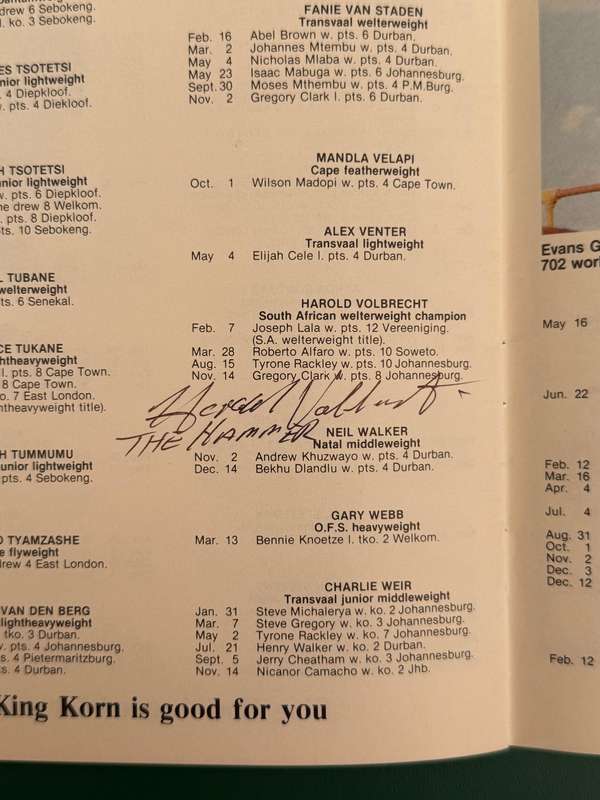 drew 6 Sebokeng.
l. ko. 3 Sebokeng.
ES TSOTETSI
unior lightweight
. 4 Diepkloof.
s. 4 Diekloof.
H TSOTETSI
unior lightweight
w. pts. 6 Diepkloof.
ne drew 8 Welkom.
. pts. 8 Diepkloof.
ts. 10 Sebokeng.
L TUBANE
welterweight
ts. 6 Senekal.
CE TUKANE
ghtheavyweight
l. pts. 8 Cape Town.
8 Cape Town.
o. 7 East London.
ghtheavyweight title).
H TUMMUMU
junior lightweight
pts. 4 Sebokeng.
O TYAMZASHE
e flyweight
drew 4 East London.
VAN DEN BERG
lightheavyweight
tko. 3 Durban.
w. pts. 4 Johannesburg.
s. 4 Pietermaritzburg.
s. 4 Durban.
FANIE VAN STADEN
Transvaal welterweight
Feb. 16 Abel Brown w. pts. 6 Durban.
Mar. 2 Johannes Mtembu w. pts. 4 Durban.
May 4 Nicholas Mlaba w. pts. 4 Durban.
May 23 Isaac Mabuga w. pts. 6 Johannesburg.
Sept. 30 Moses Mthembu w. pts. 4 P.M.Burg.
Nov. 2 Gregory Clark l. pts. 6 Durban.
MANDLA VELAPI
Cape featherweight
Oct. 1 Wilson Madopi w. pts. 4 Cape Town.
ALEX VENTER
Transvaal lightweight
May 4 Elijah Cele l. pts. 4 Durban.
HAROLD VOLBRECHT
South African welterweight champion
Feb. 7 Joseph Lala w. pts. 12 Vereeniging.
(S.A. welterweight title).
Mar. 28 Roberto Alfaro w. pts. 10 Soweto.
Aug. 15 Tyrone Rackley w. pts. 10 Johannesburg.
Nov. 14 Gregory Clark w. pts. 8 Johannesburg.
Harold Volbrecht
THE HAMMER
NEIL WALKER
Natal middleweight
Nov. 2 Andrew Khuzwayo w. pts. 4 Durban.
Dec. 14 Bekhu Dlandlu w. pts. 4 Durban.
GARY WEBB
O.F.S. heavyweight
Mar. 13 Bennie Knoetze l. tko. 2 Welkom.
CHARLIE WEIR
Transvaal junior middleweight
Jan. 31 Steve Michalerya w. ko. 2 Johannesburg.
Mar. 7 Steve Gregory w. ko. 3 Johannesburg.
May 2 Tyrone Rackley w. ko. 7 Johannesburg.
Jul. 21 Henry Walker w. ko. 2 Durban.
Sept. 5 Jerry Cheatham w. ko. 3 Johannesburg.
Nov. 14 Nicanor Camacho w. ko. 2 Jhb.
King Korn is good for you
Evans G
702 worl
May 16
Jun. 22
Feb. 12
Mar. 16
Apr. 4
Jul. 4
Aug. 31
Oct. 1
Nov. 2
Dec. 3
Dec. 12
Feb. 12